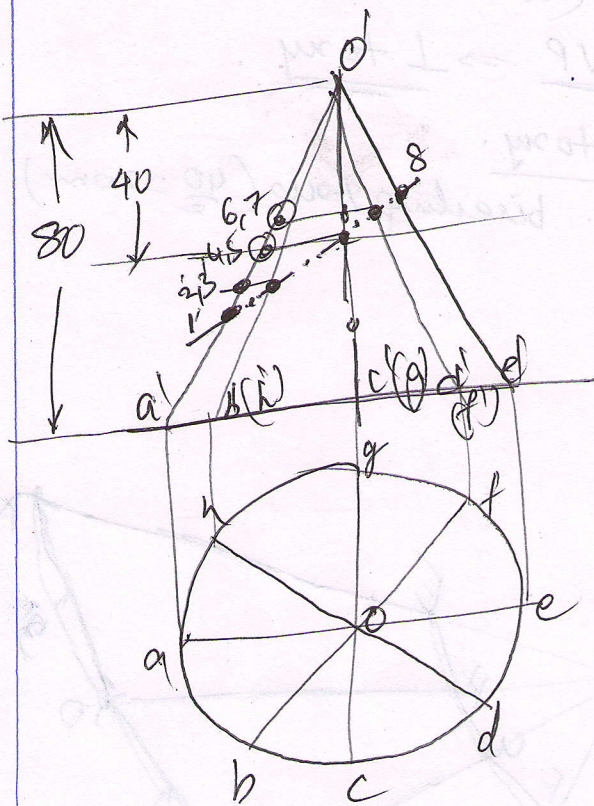 o'
40
80
8
6,7
4,5
2,3
1
a'
b'(h')
c'(g')
d'
(f')
e'
g
h
f
o
e
a
d
b
c